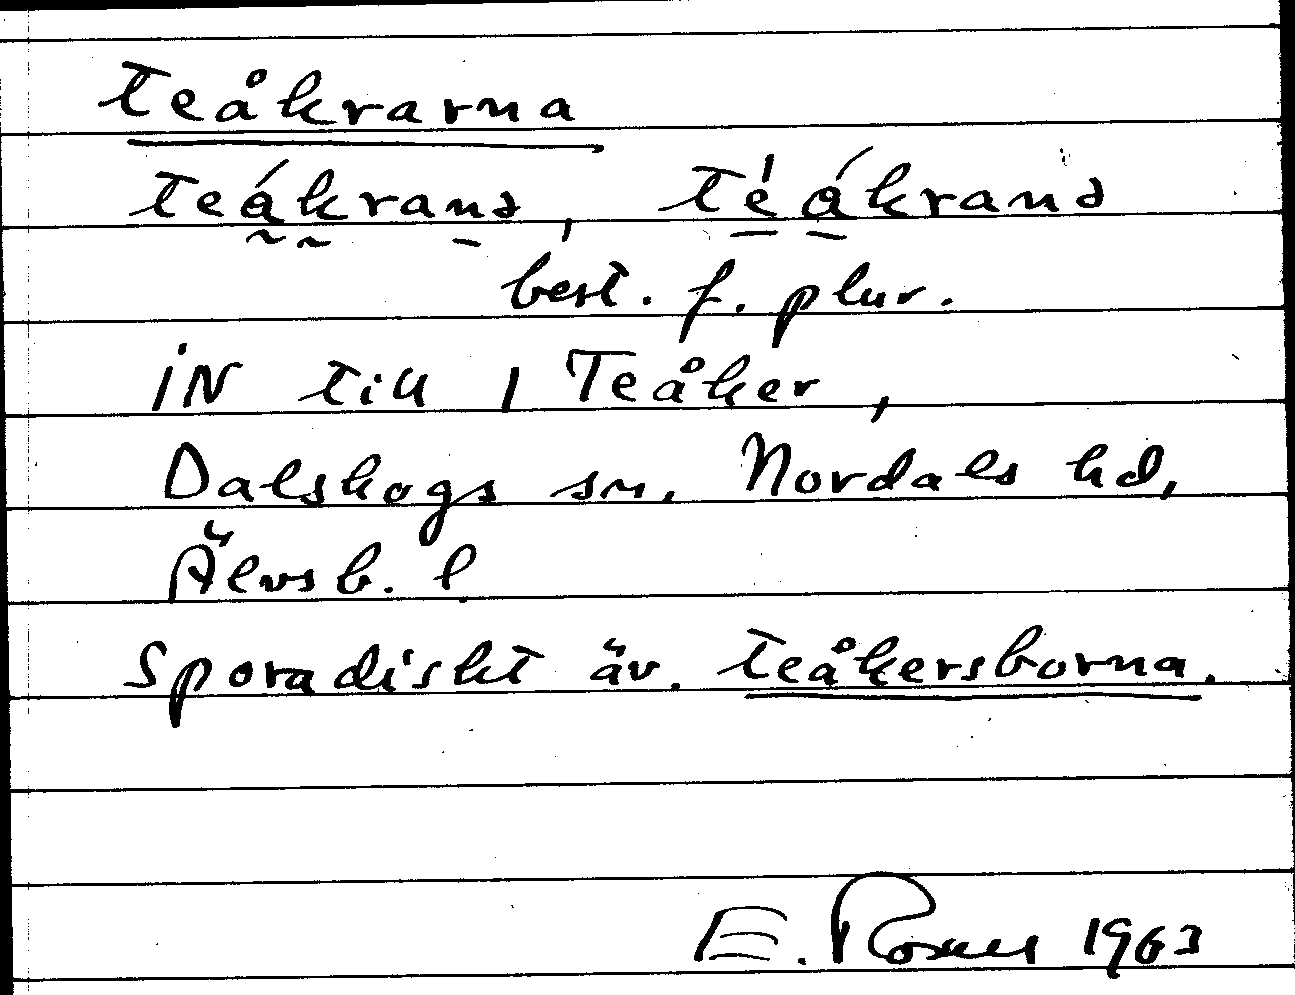 teåkrarna
teákranə, té ákranə
best. f. plur.
iN till 1 Teåker,
Dalskogs sn. Nordals hd,
Älvsb. l.
Sporadiskt äv. teåkersborna.
E. Rosell 1963